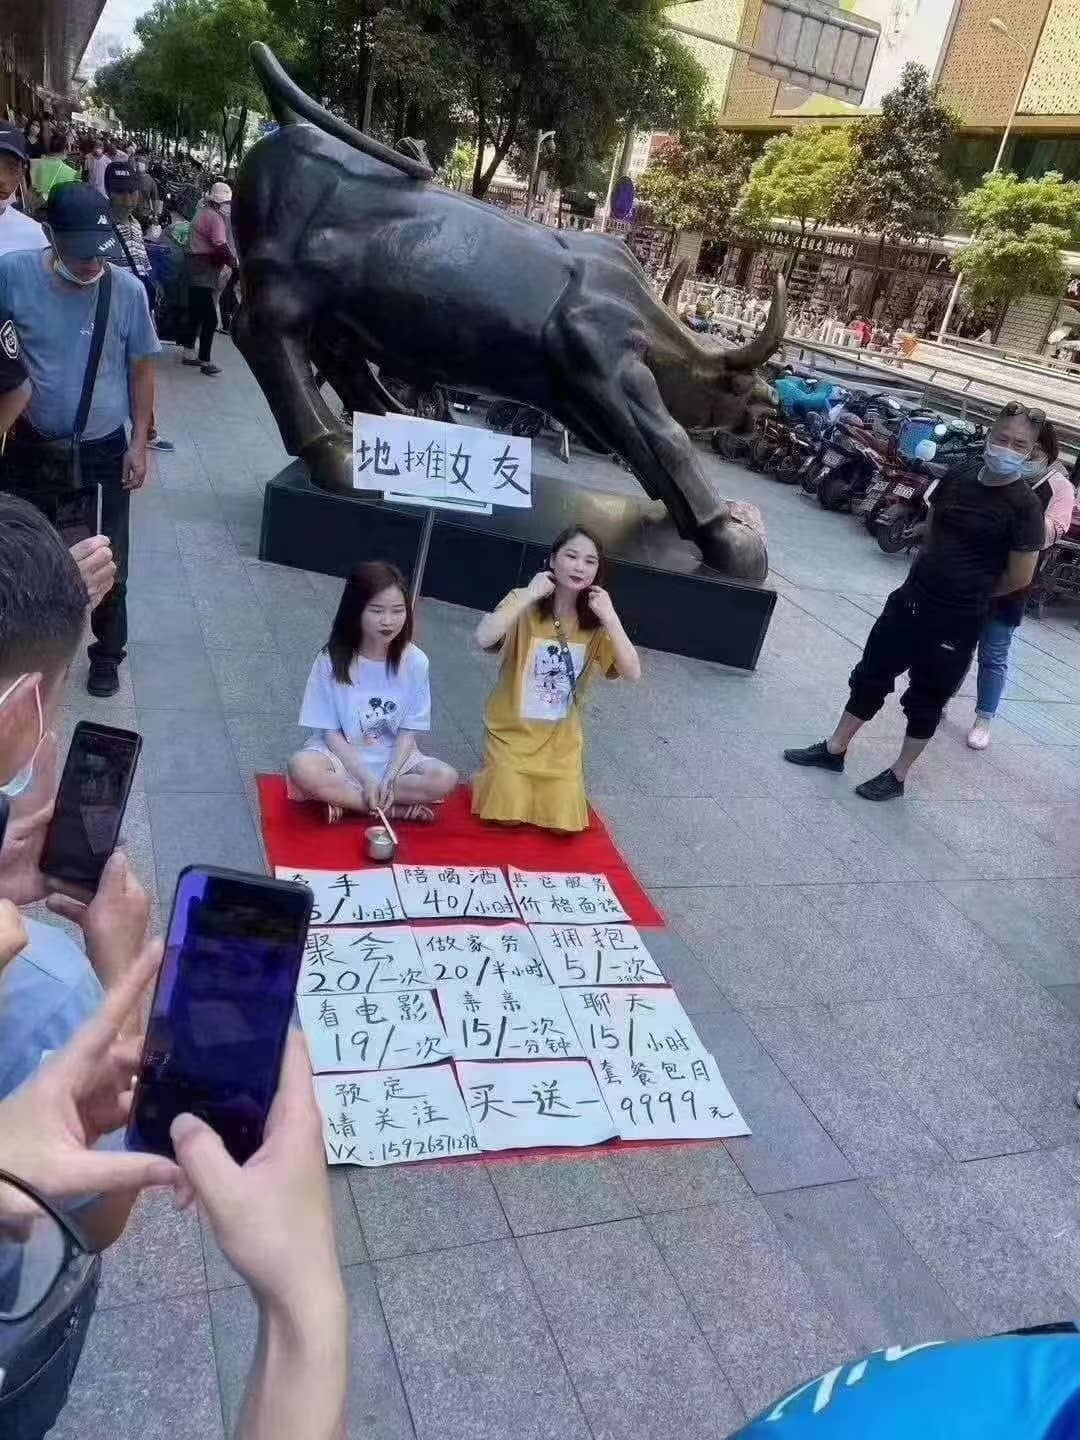 地摊女友
牵手
5/小时
陪喝酒
40/小时
其它服务
价格面谈
聚会
20/一次
做家务
20/半小时
拥抱
5/一次
3分钟
看电影
19/一次
亲亲
15/一次
一分钟
聊天
15/小时
预定
请关注
VX:15926371298
买一送一
套餐包月
9999元